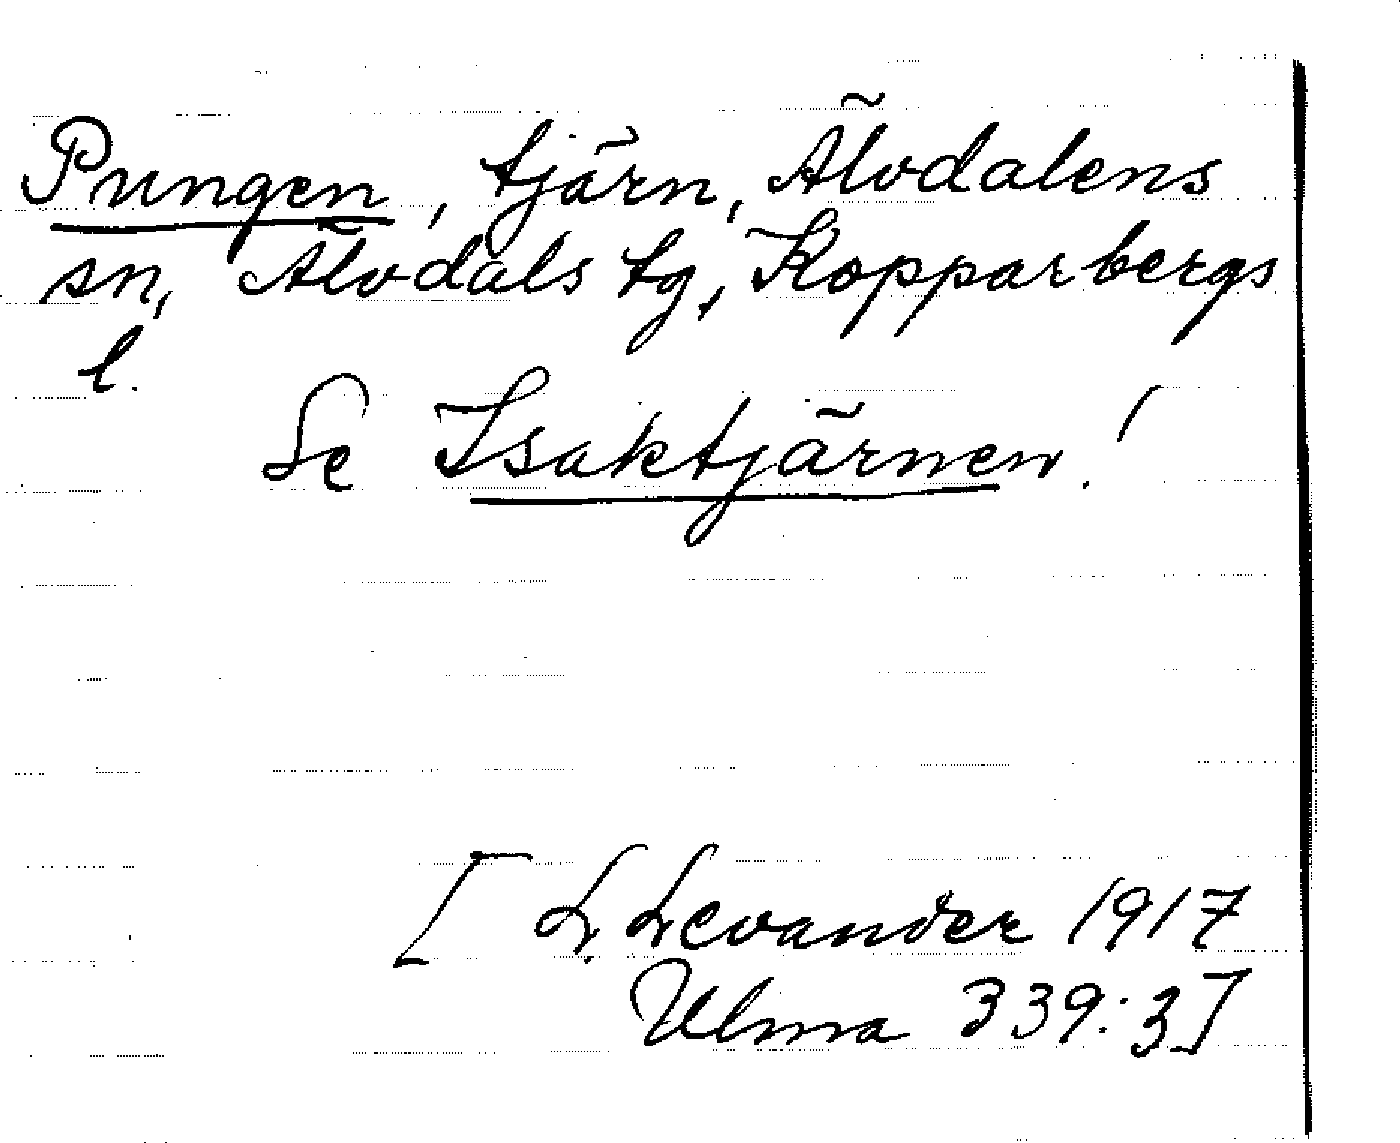 Pungen, tjärn, Älvdalens
sn, Älvdals tg, Kopparbergs
l.
Se Isaktjärnen!
[L. Levander 1917
Ulma 339:3]